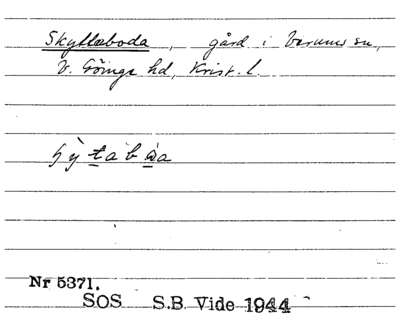 Skyttleboda, gård i Verums sn,
V. Göinge hd, Krist. l.
Nr 5371.
SOS S.B. Vide 1944